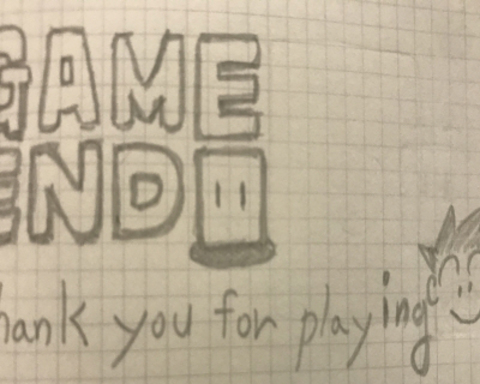 GAME
END
hank you for playing